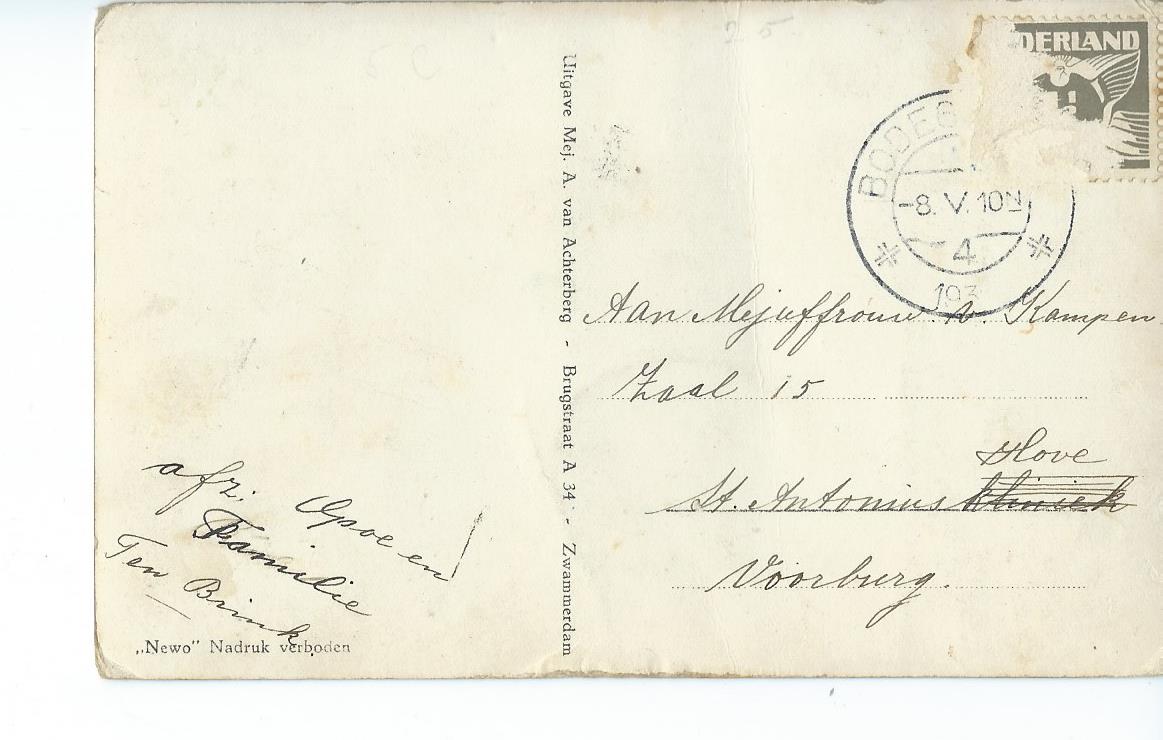 DERLAND
BODEG
-8. V. 10N
4
193
Uitgave Mej. A. van Achterberg - Brugstraat A 34 - Zwammerdam
Aan Mejuffrouw v. Kampen
Zaal 15
Hove
St. Antonius kliniek
Voorburg.
afz. Opoe en
Familie
Ten Brink
„Newo” Nadruk verboden